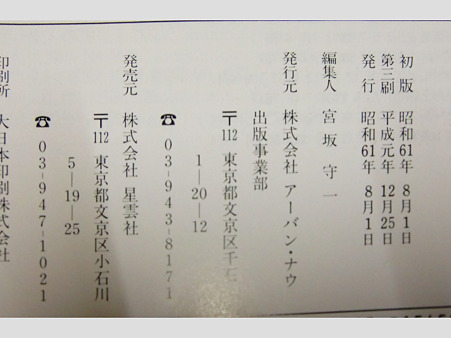 初版 昭和61年 8月1日
第三刷 平成元年 12月25日
発行 昭和61年 8月1日
編集人 宮坂守一
発行元 株式会社 アーバン・ナウ
出版事業部
〒112 東京都文京区千石
1―20―12
☎ 03-943-8171
発売元 株式会社 星雲社
〒112 東京都文京区小石川
5―19―25
☎ 03-947-1021
印刷所 大日本印刷株式会社